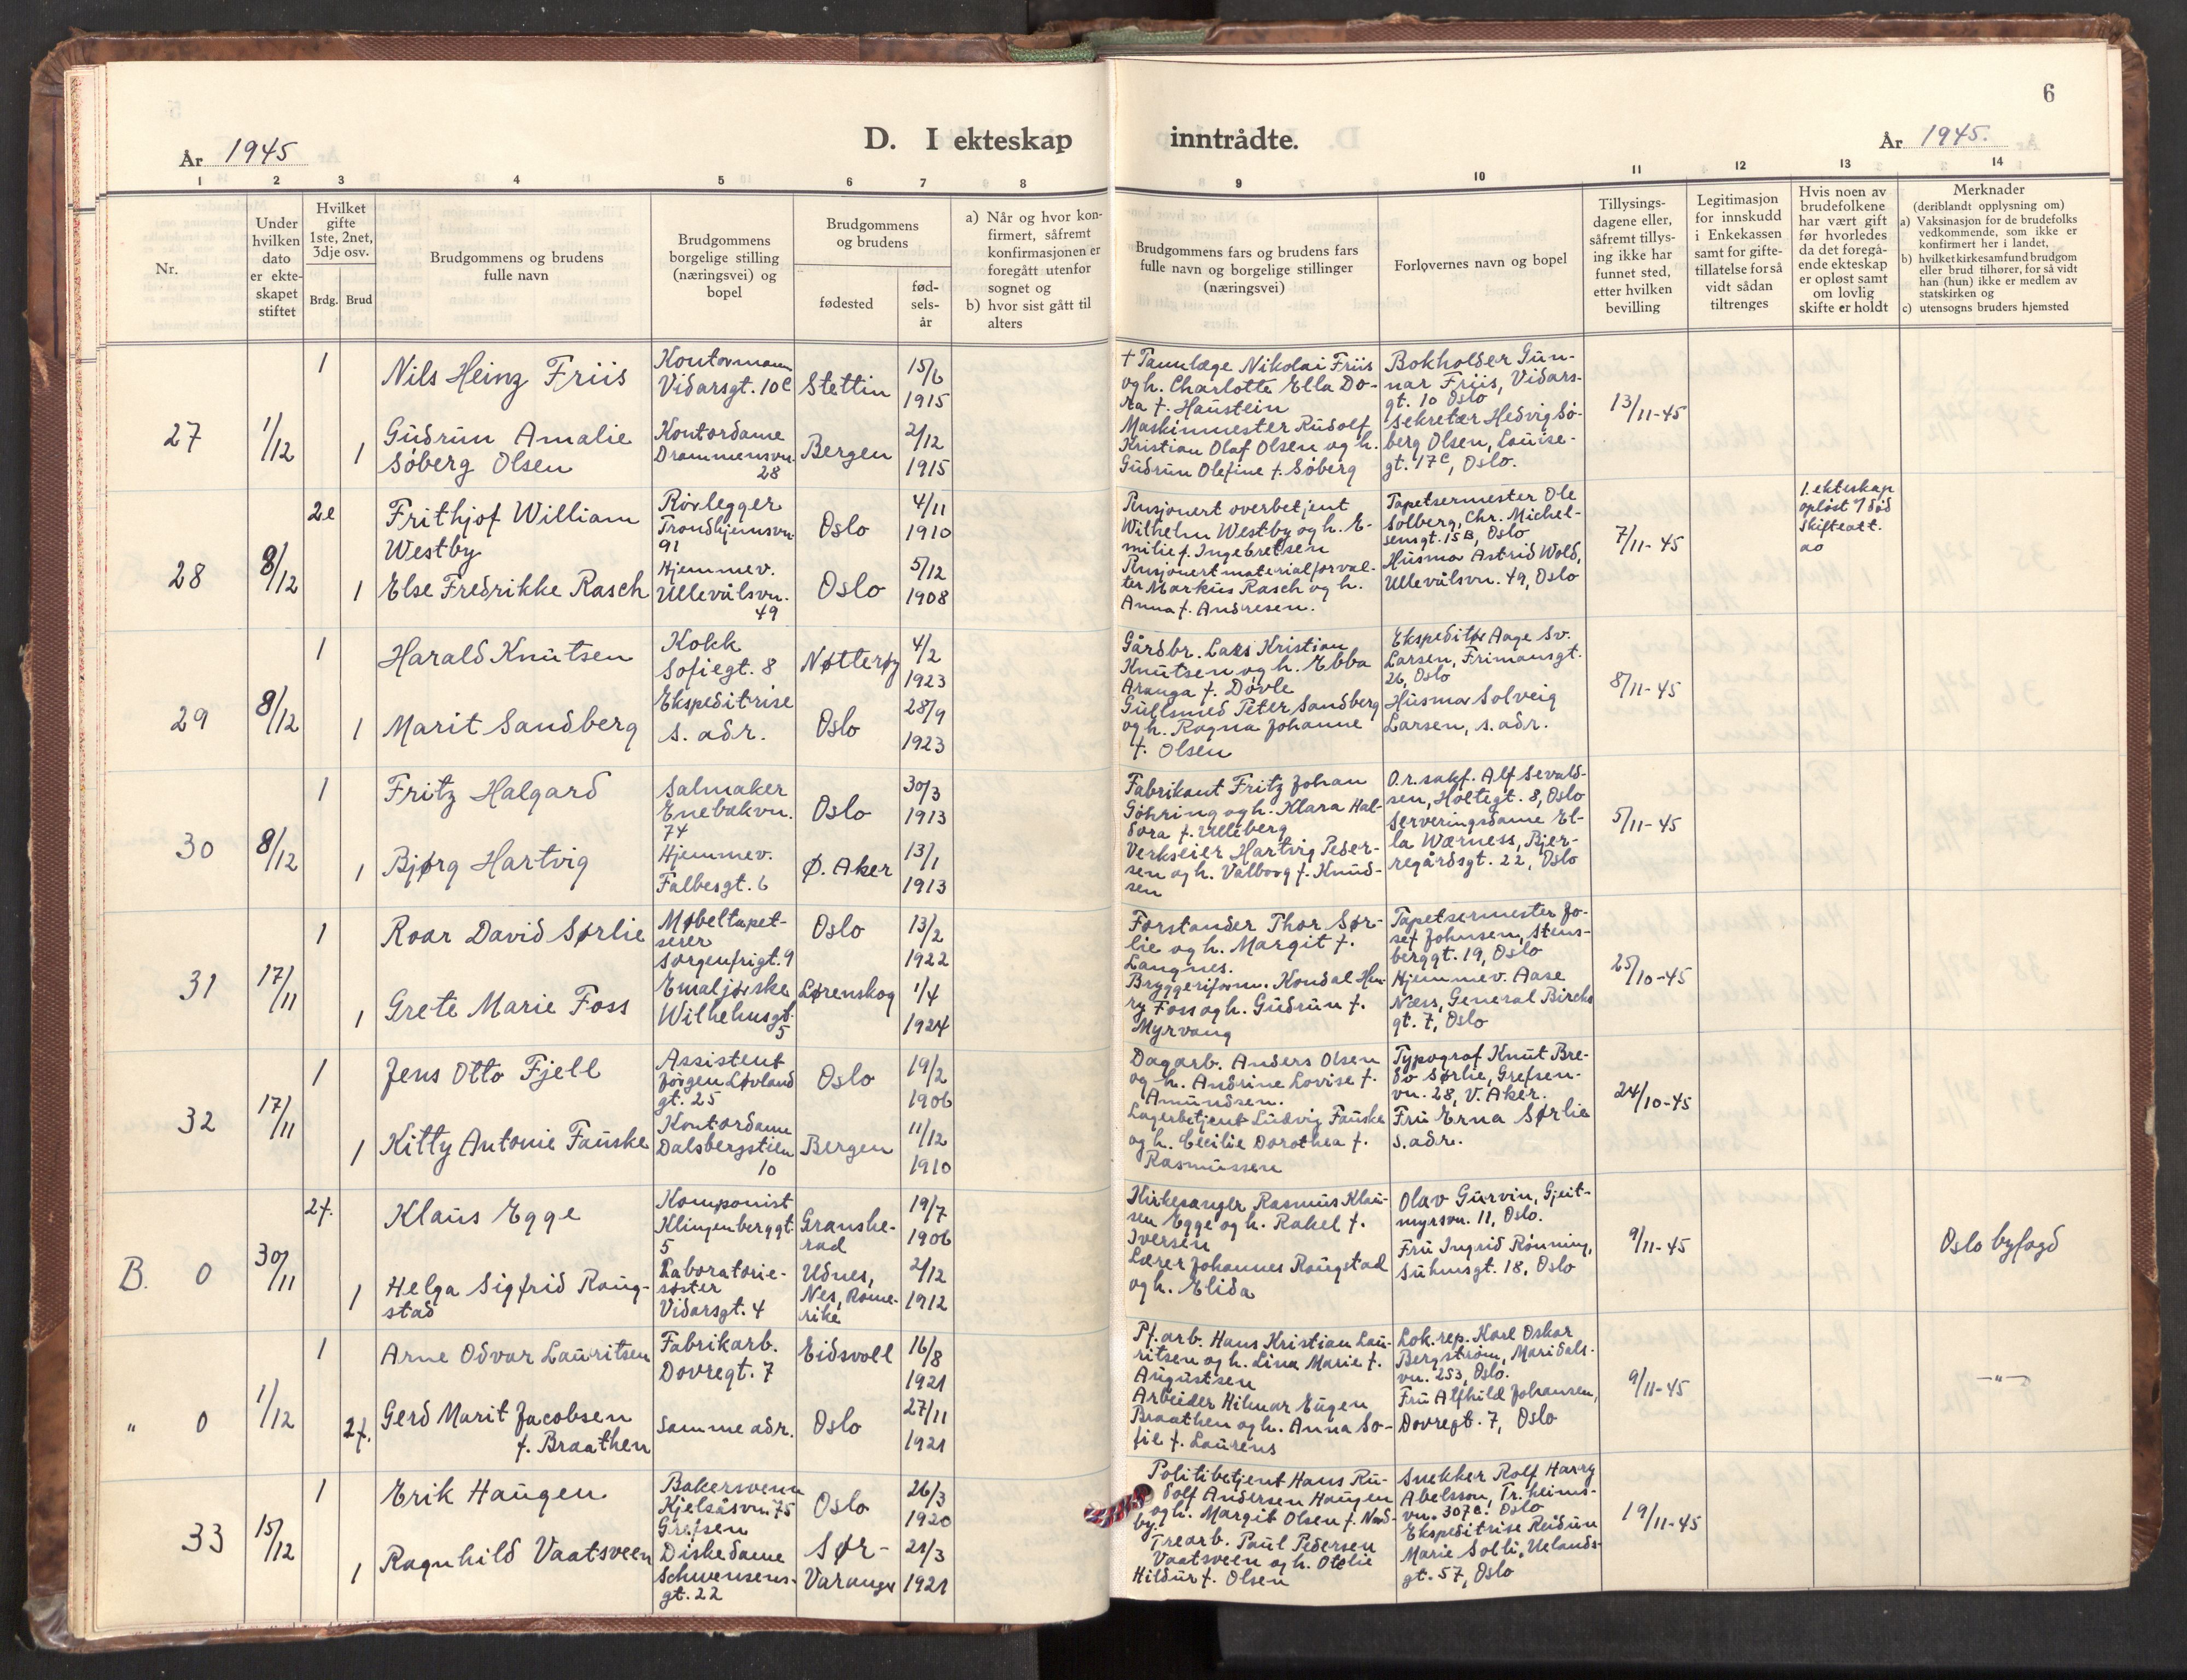 6
D. I ekteskap inntrådte.
År 1945
År 1945.
1 2 3 4 5 6 7 8 9 10 11 12 13 14
Nr.
Under
hvilken
dato
er ekte-
skapet
stiftet
Hvilket
gifte
1ste, 2net,
3dje osv.
Brdg. Brud
Brudgommens og brudens
fulle navn
Brudgommens
borgelige stilling
(næringsvei) og
bopel
Brudgommens
og brudens
fødested
fød-
sels-
år
a) Når og hvor kon-
firmert, såfremt
konfirmasjonen er
foregått utenfor
sognet og
b) hvor sist gått til
alters
Brudgommens fars og brudens fars
fulle navn og borgelige stillinger
(næringsvei)
Forlovernes navn og bopel
Tillysings-
dagene eller,
såfremt tillys-
ing ikke har
funnet sted,
etter hvilken
bevilling
Legitimasjon
for innskudd
i Enkekassen
samt for gifte-
tillatelse for så
vidt sådan
tiltrenges
Hvis noen av
brudefolkene
har vært gift
før hvorledes
da det foregå-
ende ekteskap
er opløst samt
om lovlig
skifte er holdt
Merknader
(deriblandt opplysning om)
a) Vaksinasjon for de brudefolks
vedkommende, som ikke er
konfirmert her i landet,
b) hvilket kirkesamfund brudgom
eller brud tilhører, for så vidt
han (hun) ikke er medlem av
statskirken og
c) utensogns bruders hjemsted
27
1/12
1
Nils Heinz Friis
Kontormann
Vidarsgt. 10c
Stettin
15/6
1915
1
Gudrun Amalie
Søberg Olsen
Kontordame
Drammensvn.
28
Bergen
2/12
1915
+ Tannlæge Nikolai Friis
og h. Charlotte Ella Do-
ra f. Haustein
Maskinmester Rudolf
Kristian Olaf Olsen og h.
Gudrun Olefine f. Søberg
Bokholder Gun-
nar Friis, Vidars-
gt. 10 Oslo
Sekretær Hedvig Sø-
berg Olsen, Louise-
gt. 17c, Oslo.
13/11-45
28
8/12
2e
Frithjof William
Westby
Rørlegger
Trondhjemsvn.
91
Oslo
4/11
1910
1
Else Fredrikke Rasch
Hjemmev.
Ullevålsvn.
49
Oslo
5/12
1908
Pensjonert overbetjent
Wilhelm Westby og h. E-
milie f. Ingebretsen
Pensjonert materialforval-
ter Markus Rasch og h.
Anna f. Andresen.
Tapetsermester Ole
Solberg, Chr. Michel-
sensgt. 15B, Oslo
Husmor Astrid Wold,
Ullevålsvn. 49, Oslo
7/11-45
1. ekteskap
opløst v/ død
Skifteatt.
ao
29
8/12
1
Harald Knutsen
Kokk
Sofiegt. 8
Nøtterøy
4/2
1923
1
Marit Sandberg
Ekspeditrise
s. adr.
Oslo
28/9
1923
Gårdbr. Lars Kristian
Knutsen og h. Ebba
Aranga f. Døvle
Gullsmed Peter Sandberg
og h. Ragna Johanne
f. Olsen
Ekspeditør Aage Sv.
Larsen, Frimansgt.
26, Oslo
Husmor Solveig
Larsen, s. adr.
8/11-45
30
8/12
1
Fritz Halgard
Salmaker
Enebakvn.
74
Oslo
30/3
1913
1
Bjørg Hartvig
Hjemmev.
Falbesgt. 6
Ø. Aker
13/1
1913
Fabrikant Fritz Johan
Göhring og h. Klara Hal-
dora f. Ulleberg
Verkseier Hartvig Peder-
sen og h. Valborg f. Knud-
sen
O.r.sakf. Alf Sevald-
sen, Holtegt. 8, Oslo
Serveringsdame El-
la Wærness, Bjer-
regårdsgt. 22, Oslo
5/11-45
31
17/11
1
Roar David Sørlie
Møbeltapet-
serer
Sorgenfrigt. 9
Oslo
13/2
1922
1
Grete Marie Foss
Emaljørske
Wilhelmsgt.
5
Lørenskog
1/4
1924
Forstander Thor Sør-
lie og h. Margit f.
Langnes.
Bryggeriform. Kondal Hen-
ry Foss og h. Gudrun f.
Myrvang
Tapetsermester Jo-
sef Johnsen, Stens-
berggt. 19, Oslo
Hjemmev. Aase
Næss, General Birchs
gt. 7, Oslo
25/10-45
32
17/11
1
Jens Otto Fjell
Assistent
Jørgen Løvland
gt. 25
Oslo
19/2
1906
1
Kitty Antonie Fauske
Kontordame
Dalsbergstien
10
Bergen
11/12
1910
Dagarb. Anders Olsen
og h. Andrine Lovise f.
Amundsen.
Lagerbetjent Ludvig Fauske
og h. Cecilie Dorothea f.
Rasmussen
Typograf Knut Bre-
do Sørlie, Grefsen-
vn. 28, V. Aker.
Fru Erna Sørlie
s. adr.
24/10-45
B. 0
30/11
2f.
Klaus Egge
Komponist
Klingenberggt.
5
Granshe-
rad
19/7
1906
1
Helga Sigfrid Roug-
stad
Laboratorie-
søster
Vidarsgt. 4
Udnes,
Nes, Rome-
rike
2/12
1912
Kirkesanger Rasmus Klau-
sen Egge og h. Rakel f.
Iversen
Lærer Johannes Rougstad
og h. Elida
Olav Gurvin, Gjeit-
myrsvn. 11, Oslo.
Fru Ingrid Rønning,
Suhmsgt. 18, Oslo
9/11-45
Oslo byfogd
" 0
1/12
1
Arne Odvar Lauritsen
Fabrikarb.
Dovregt. 7
Eidsvoll
16/8
1921
2f.
Gerd Marit Jacobsen
f. Braathen
Samme adr.
Oslo
27/11
1921
Pf.arb. Hans Kristian Lau-
ritsen og h. Lina Marie f.
Augustsen
Arbeider Hilmar Eugen
Braathen og h. Anna So-
fie f. Laurens
Lok.rep. Karl Oskar
Bergstrøm, Maridals-
vn. 253, Oslo.
Fru Alfhild Johansen,
Dovregt. 7, Oslo
9/11-45
—"—
33
15/12
1
Erik Haugen
Bakersvenn
Kjelsåsvn. 75
Grefsen
Oslo
26/3
1920
1
Ragnhild Vaatsveen
Diskedame
Schwensens-
gt. 22
Sør-
Varanger
21/3
1921
Politibetjent Hans Ru-
dolf Andersen Haugen
og h. Margit Olsen f. Nord-
by.
Trearb. Paul Pedersen
Vaatsveen og h. Otelie
Hildur f. Olsen
Snekker Rolf Harry
Abelsson, Tr.heims-
vn. 307c. Oslo
Ekspeditrise Reidun
Marie Solli, Uelands-
gt. 57, Oslo
19/11-45